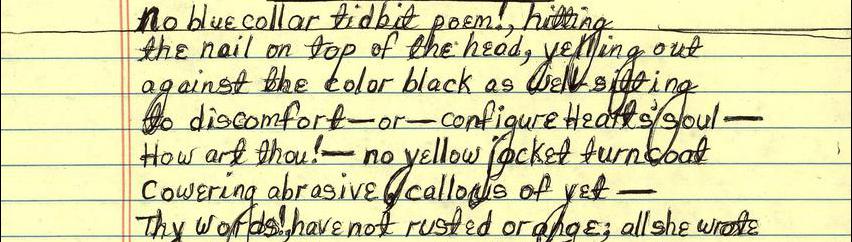 no blue collar tidbit poem!, hitting
the nail on top of the head, yelling out
against the color black as well sitting
to discomfort—or—configure Heart's soul—
How art thou!— no yellow jacket turncoat
Cowering abrasive callous of yet —
Thy words!, have not rusted orange; all she wrote